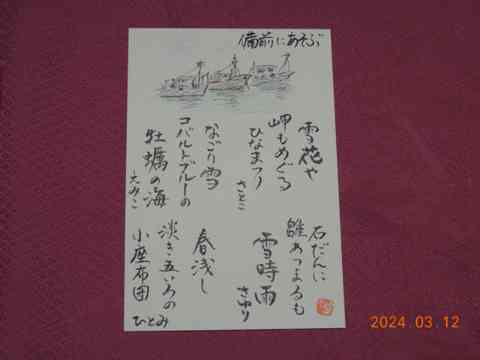 備前にあそぶ
雪花や
岬もめぐる
ひなまつり
さとこ
なごり雪
コバルトブルーの
牡蠣の海
えみこ
石だんに
雛あつまるも
雪時雨
さゆり
春浅し
淡き五いろの
小座布団
ひとみ
2024.03.12